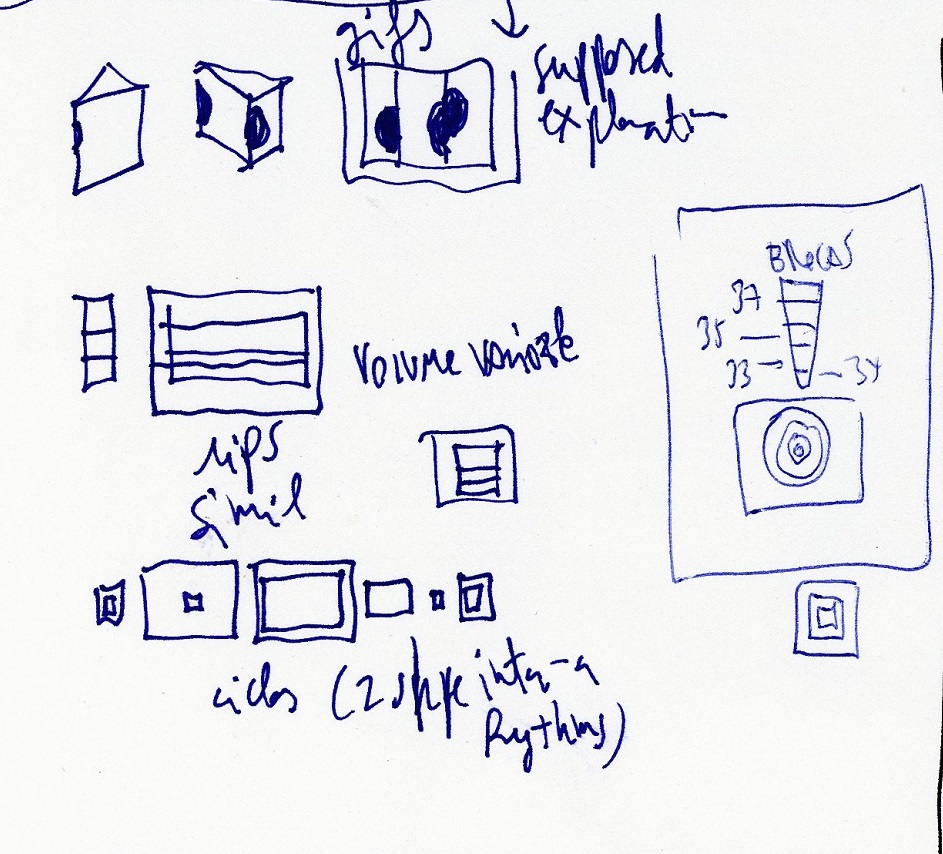 gifs
supposed
explanation
BRECAS
37
35
33
34
volume variable
rips
simil
ciclos (2 shape inter-a
Rythms)